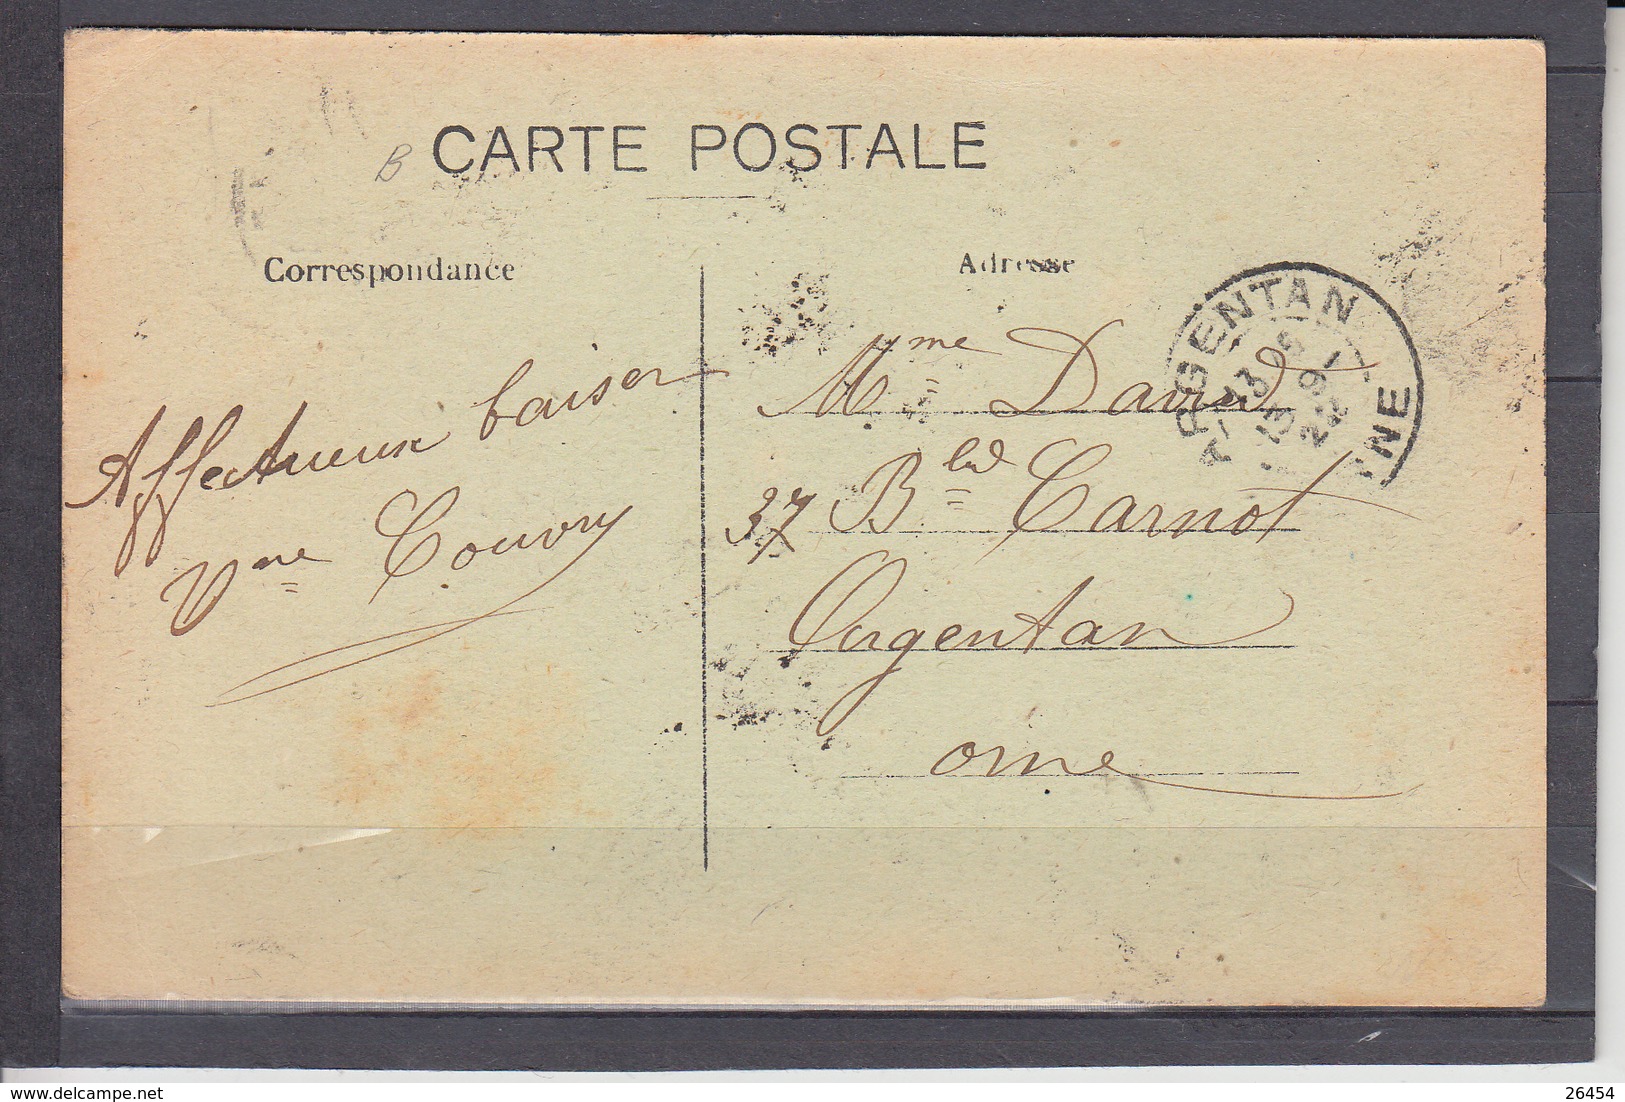 B CARTE POSTALE
Correspondance
Affectueux baiser
Vne Couvry
Adresse
Mme David
37 Bld Carnot
Argentan
Orne
ARGENTAN
26454
www.delcampe.net